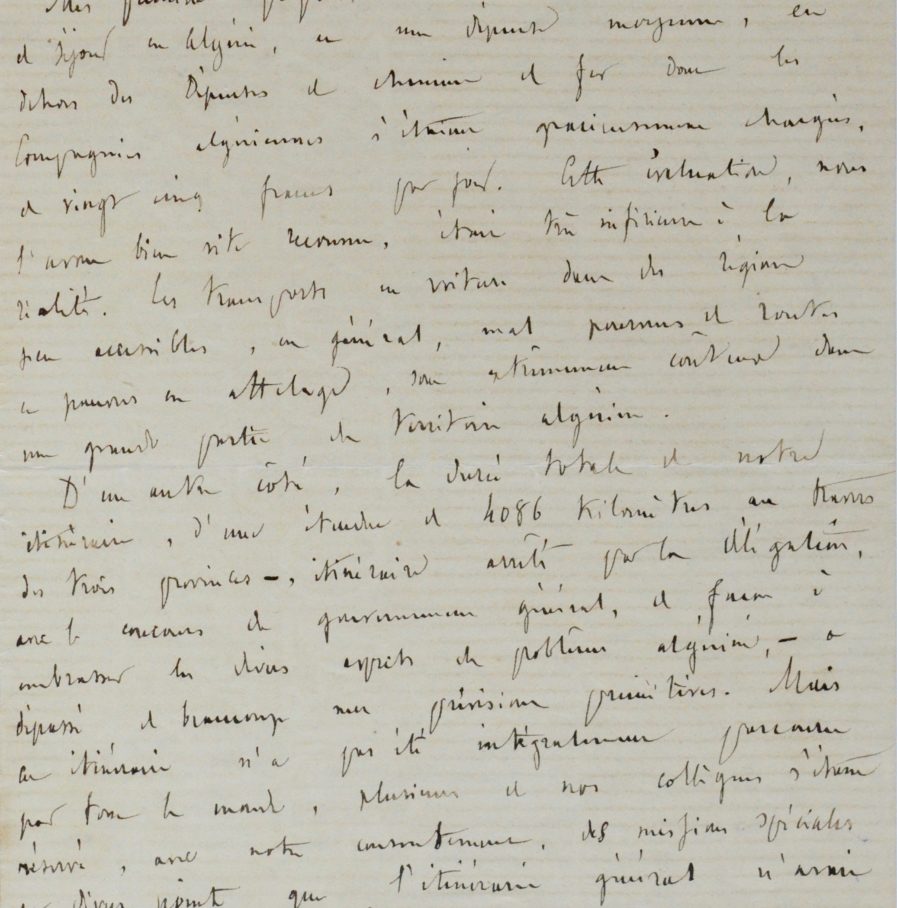 et séjour en Algérie, à une dépense moyenne, en
dehors des dépenses de chemin de fer dont les
Compagnies algériennes s'étaient gracieusement chargées,
de vingt cinq francs par jour. Cette évaluation, nous
l'avons bien vite reconnu, était très inférieure à la
réalité. Les transports en voiture dans des régions
peu accessibles, en général, mal pourvues de routes
et pauvres en attelages, sont extrêmement coûteux dans
une grande partie du territoire algérien.
D'un autre côté, la durée totale de notre
itinéraire, d'une étendue de 4086 kilomètres au travers
des trois provinces -, itinéraire arrêté par la délégation,
avec le concours du gouvernement général, de façon à
embrasser les divers aspects du problème algérien, - a
dépassé de beaucoup nos prévisions primitives. Mais
cet itinéraire n'a pas été intégralement parcouru
par tout le monde, plusieurs de nos collègues s'étant
réservé, avec notre consentement, des missions spéciales
divers points que l'itinéraire général n'avait